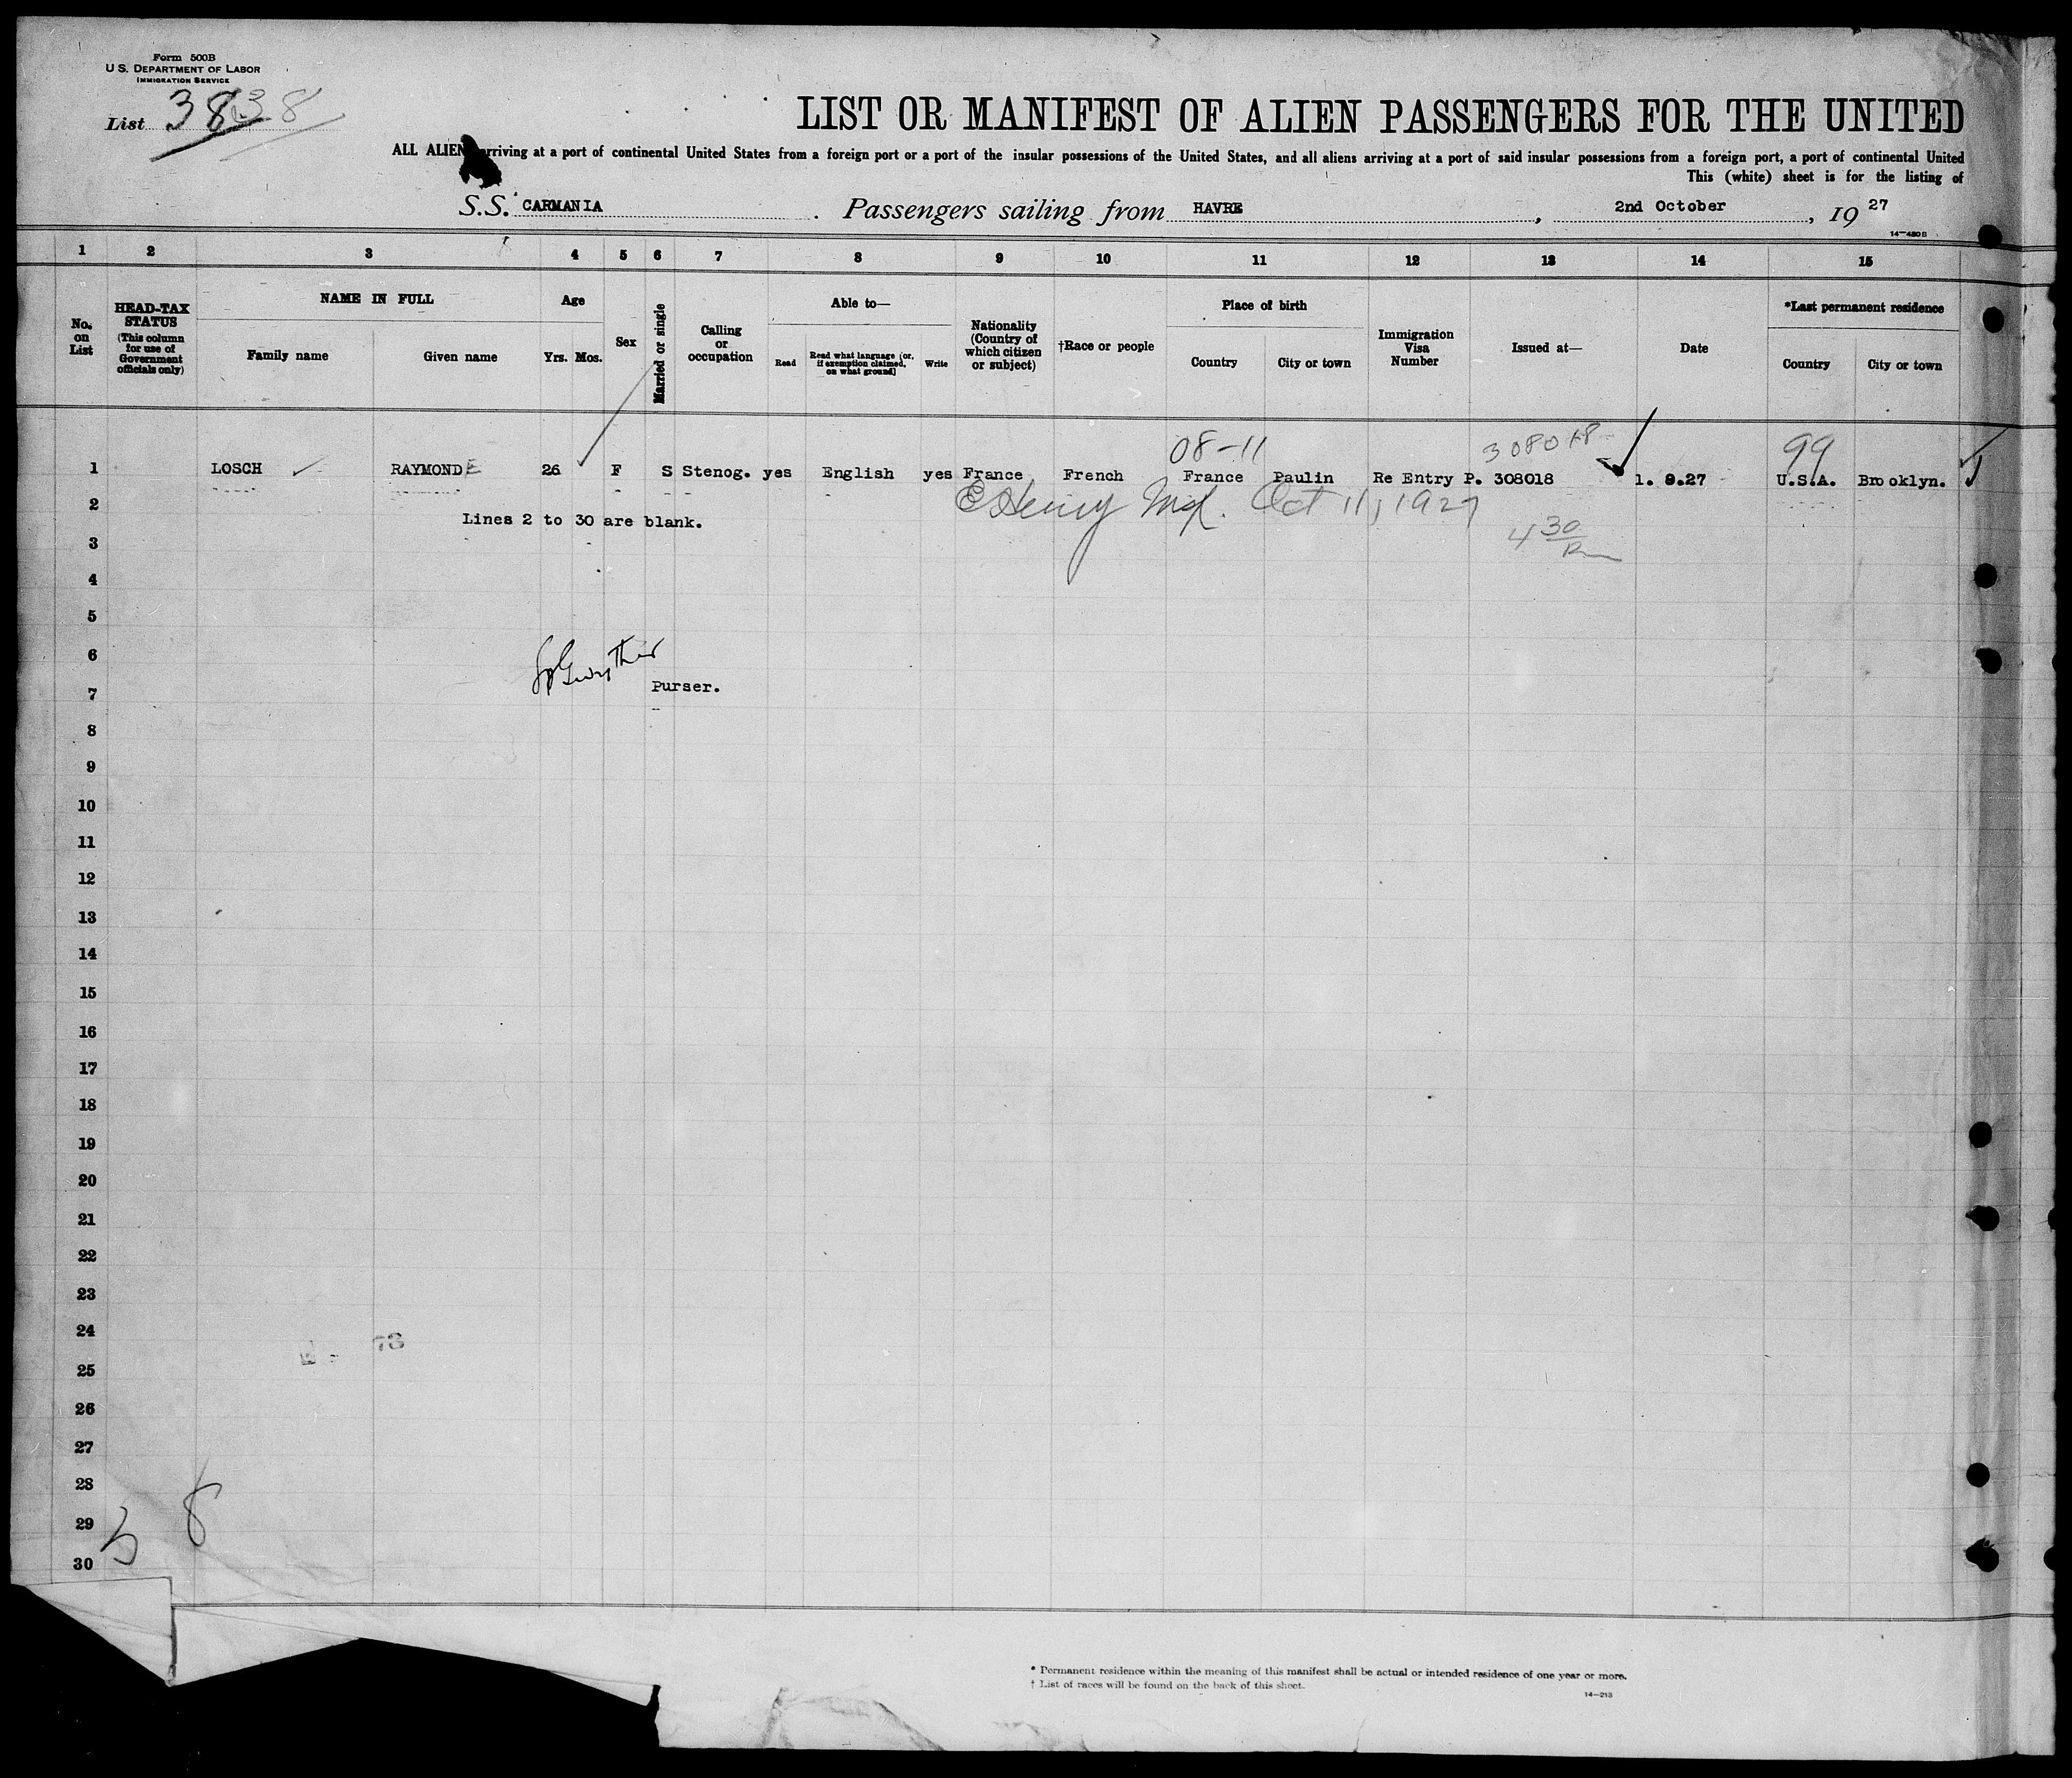 Form 500B
U.S. DEPARTMENT OF LABOR
IMMIGRATION SERVICE
List 38 38
LIST OR MANIFEST OF ALIEN PASSENGERS FOR THE UNITED
ALL ALIEN arriving at a port of continental United States from a foreign port or a port of the insular possessions of the United States, and all aliens arriving at a port of said insular possessions from a foreign port, a port of continental United
This (white) sheet is for the listing of
S.S. CARMANIA . Passengers sailing from HAVRE , 2nd October , 19 27
14—480B
1 2 3 4 5 6 7 8 9 10 11 12 13 14 15
No. on List
HEAD-TAX STATUS (This column for use of Government officials only)
NAME IN FULL
Family name Given name
Age
Yrs. Mos.
Sex
Married or single
Calling or occupation
Able to—
Read Read what language [or, if exemption claimed, on what ground] Write
Nationality (Country of which citizen or subject)
†Race or people
Place of birth
Country City or town
Immigration Visa Number
Issued at—
Date
*Last permanent residence
Country City or town
08-11 308018 99
1 LOSCH RAYMONDE 26 F S Stenog. yes English yes France French France Paulin Re Entry P. 308018 1. 9.27 U.S.A. Brooklyn.
2 Oct 11, 1927
Lines 2 to 30 are blank.
3 4 30
4
5
6
7 Purser.
8
9
10
11
12
13
14
15
16
17
18
19
20
21
22
23
24
25
26
27
28
29
30
* Permanent residence within the meaning of this manifest shall be actual or intended residence of one year or more.
† List of races will be found on the back of this sheet.
14—213